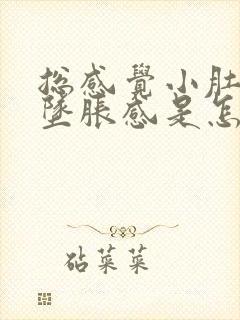 總感覺小肚
墜脹感是怎
砧菜菜